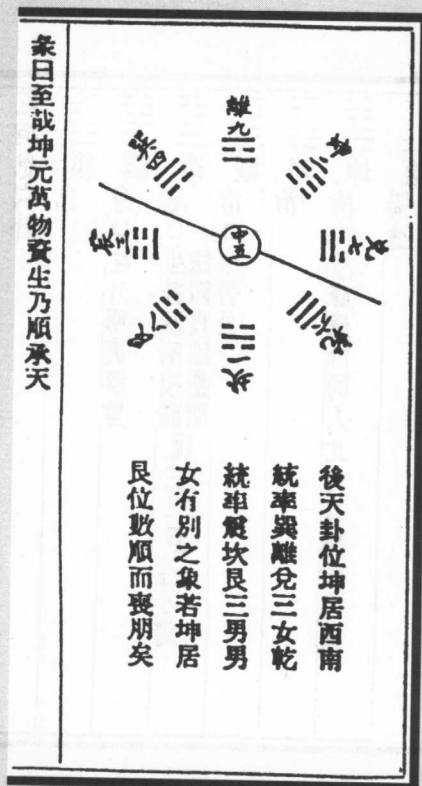 離九
坤二
兌七
乾六
坎一
艮八
震三
巽四
中五
後天卦位坤居西南
統率巽離兌三女乾
統率震坎艮三男男
女有別之象若坤居
艮位數順而喪朋矣
彖曰至哉坤元萬物資生乃順承天